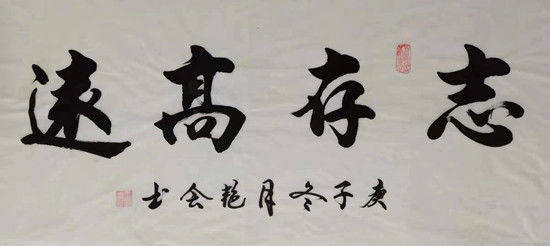 志存高遠
庚子冬月艳会书